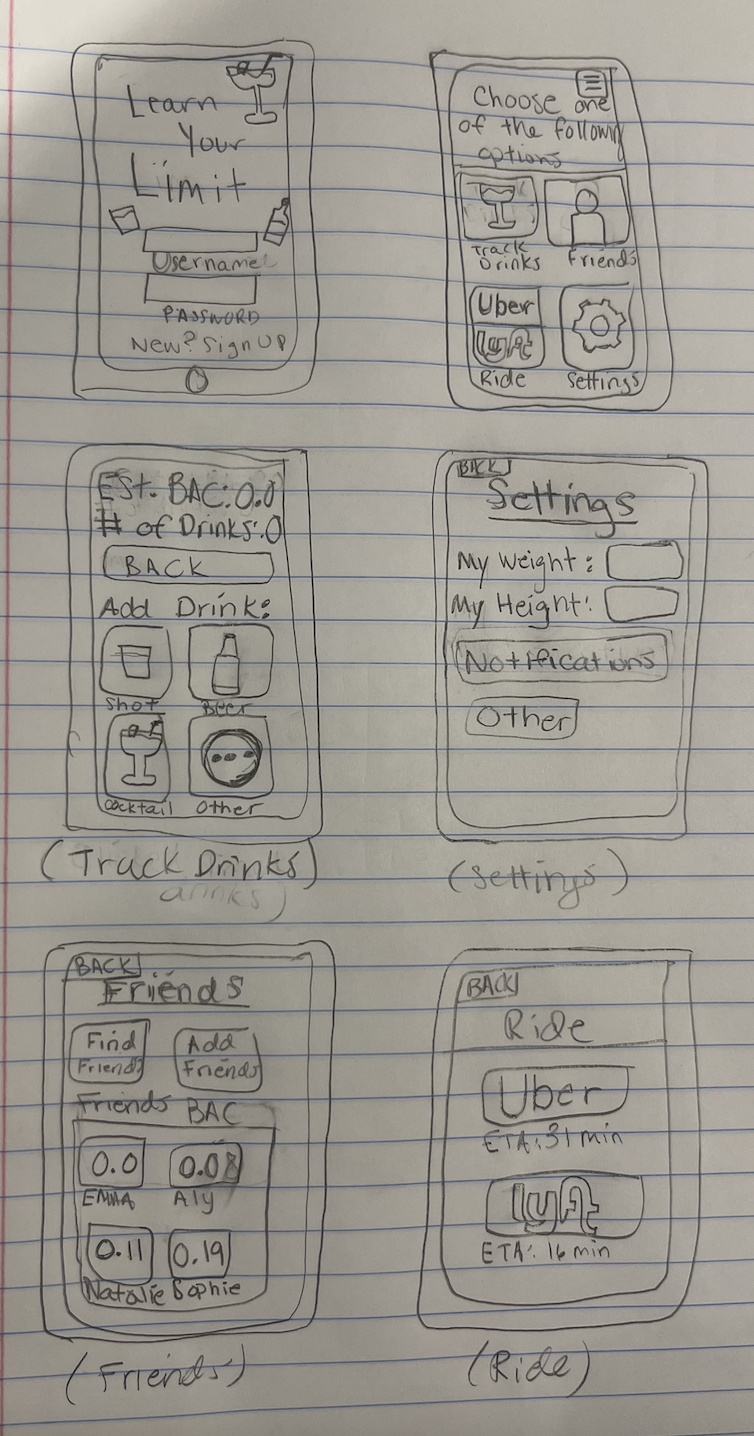 Learn
Your
Limit
Username
PASSWORD
New? Sign UP
Choose one
of the following
options
Track
Drinks
Friends
Uber
Lyft
Ride
Settings
Est. BAC: 0.0
# of Drinks: 0
BACK
Add Drink:
Shot
Beer
Cocktail
Other
(Track Drinks)
drinks)
BACK
Settings
My Weight:
My Height:
Notifications
Other
(Settings)
BACK
Friends
Find
Friends
Add
Friends
Friends BAC
0.0
EMMA
0.08
Aly
0.11
Natalie
0.19
Sophie
(Friends)
BACK
Ride
Uber
ETA: 31 min
Lyft
ETA: 16 min
(Ride)